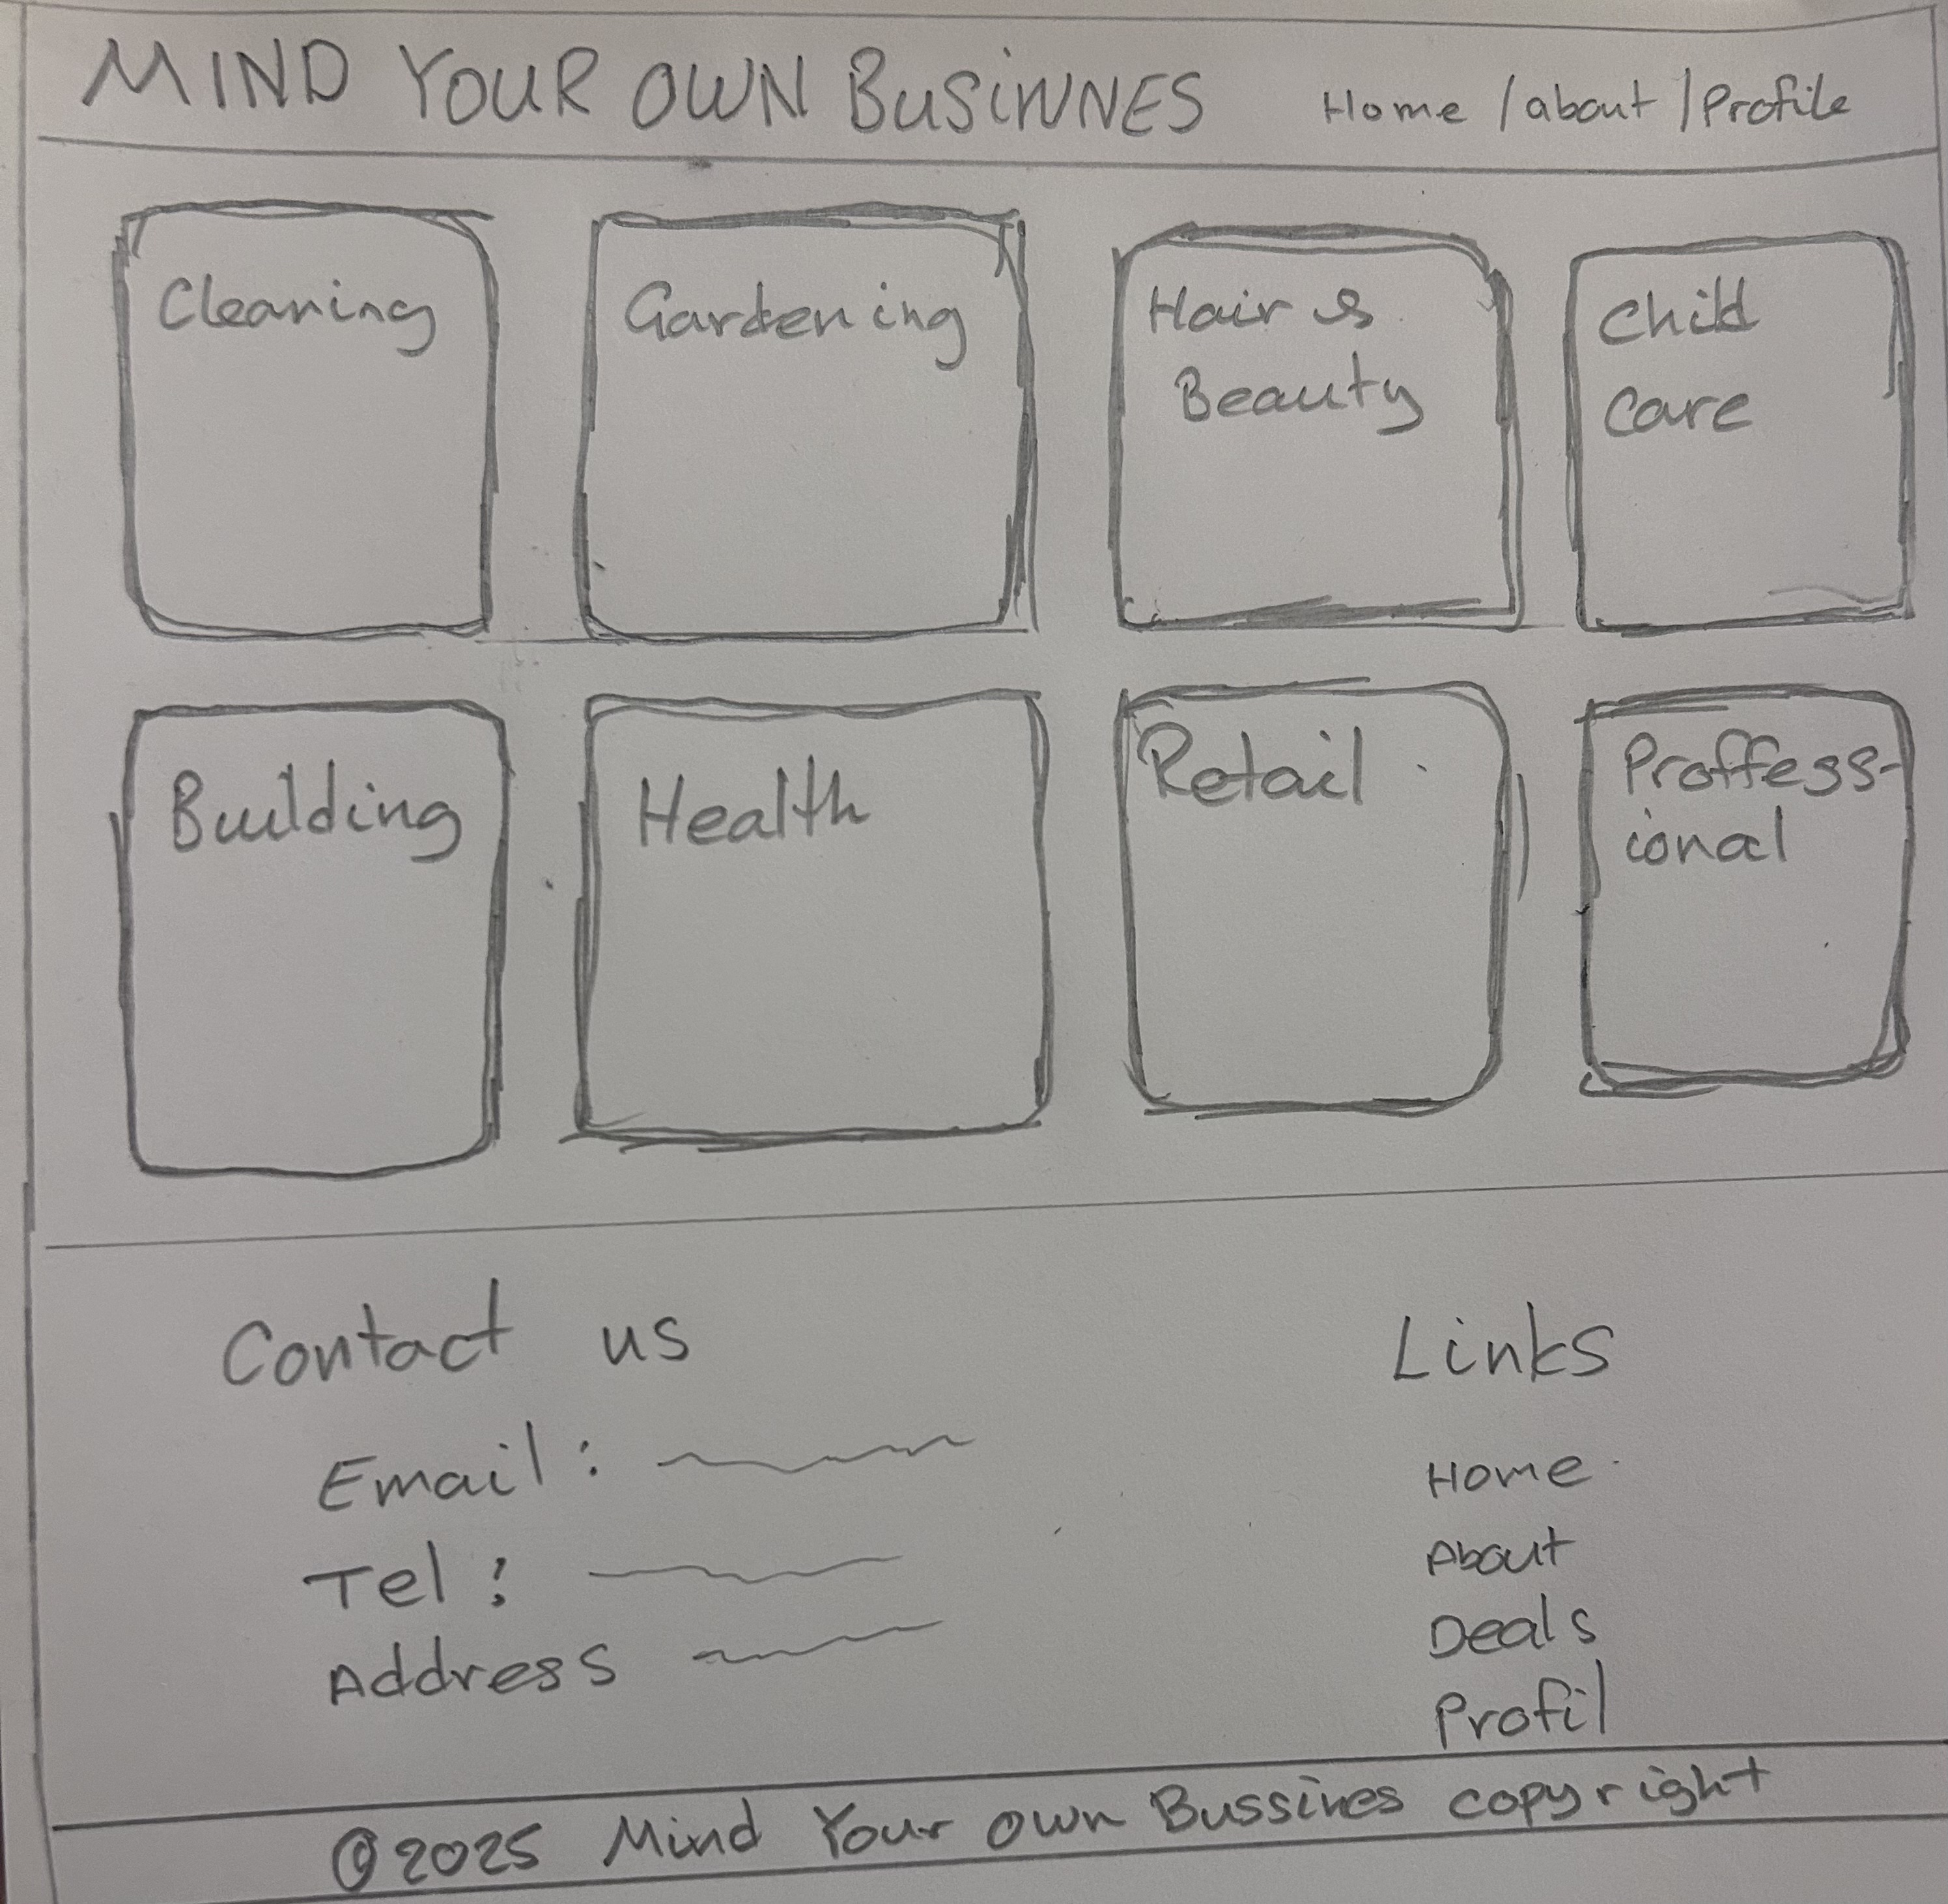 MIND YOUR OWN BUSINNES Home / about / Profile
Cleaning Gardening Hair & Child
Beauty Care
Building Health Retail Proffess-
ional
Contact us Links
Email : Home
Tel : About
Address Deals
Profil
©2025 Mind Your own Bussines copyright